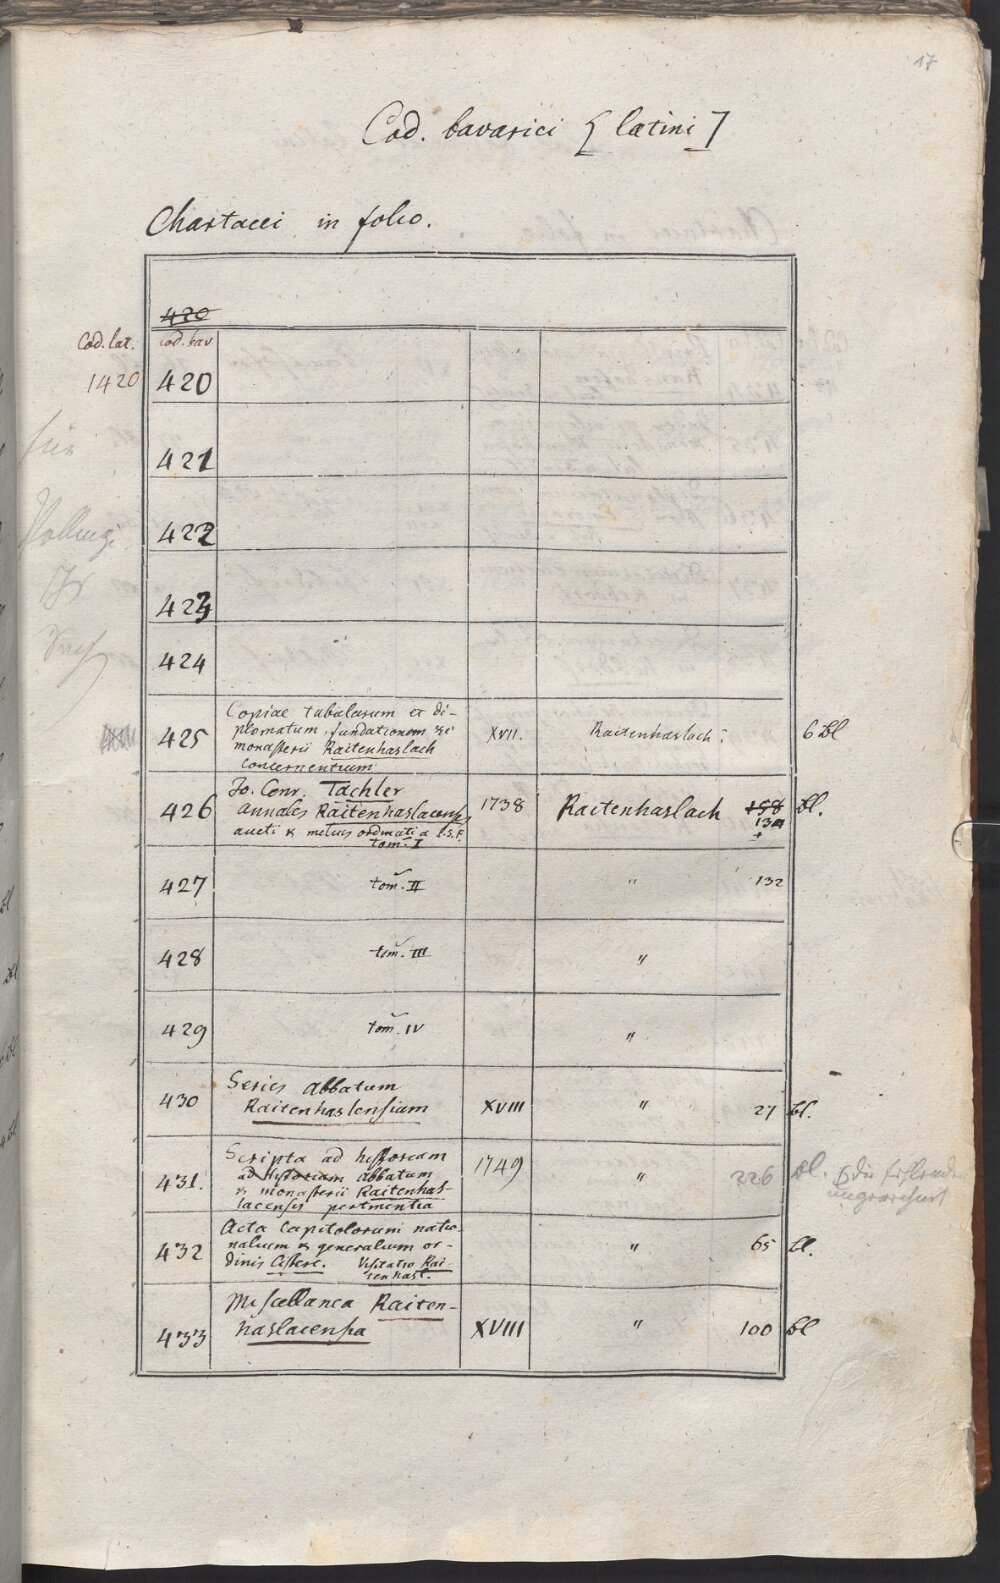 17
Cod. bavarici [latini]
Chartacei in folio.
420
Cod. lat. cod. bav
1420 420
für
421
Polling
422
423
424
425 Copiae tabularum et di-
plomatum, fundationem &c
monasterii Raitenhaslach
concernentium XVII. Raitenhaslach? 6 Bl
426 Jo. Conr. Tachler
annales Raitenhaslacenses
aucti & melius ordinati a I.S.F.
tom. I 1738 Raitenhaslach 158 Bl.
131
+
427 tom. II " 132
428 tom. III "
429 tom. IV "
430 Series abbatum
Raitenhaslensium XVIII " 27 bl.
431. Scripta ad historiam
ad historiam abbatum
& monasterii Raitenhas-
lacensis pertinentia 1749 " 226 bl. die fehlenden
432 Acta Capitolorum natio-
nalium & generalium or-
dinis Cisterc. Visitatio Rai-
tenhasl. " 65 bl.
433 Miscellanea Raiten-
haslacensia XVIII " 100 bl